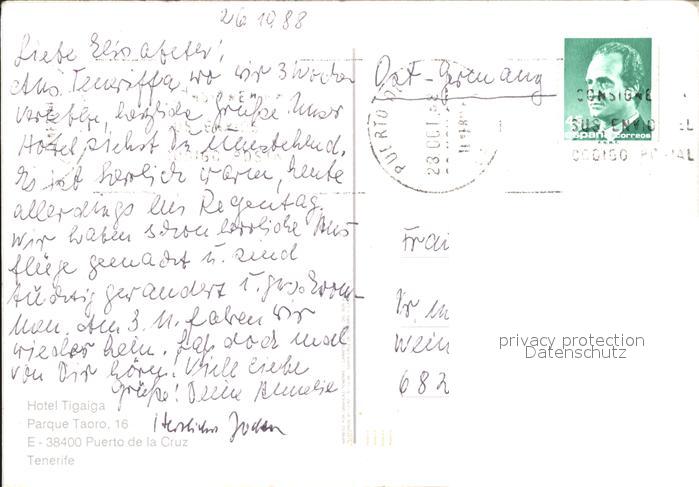 26.10.88
Liebe Elisabeth!
Aus Teneriffa wo wir 3 Wochen
verleben, herzliche Grüße. Unser
Hotel siehst Du umstehend.
Es ist herrlich warm, heute
allerdings ein Regentag.
Wir haben schon herrliche Aus
flüge gemacht u. sind
tüchtig gewandert u. geschwom-
men. Am 3. 11. fahren wir
wieder heim. Laß doch mal
von Dir hören! Viele liebe
Grüße! Deine
Herzlichst Jochen
Hotel Tigaiga
Parque Taoro, 16
E - 38400 Puerto de la Cruz
Tenerife
Ost-Germany
PUERTO
28 OCT
CONSIGNE
SU
CODIGO POSTAL
España correos
Frau
Wein
682
privacy protection
Datenschutz